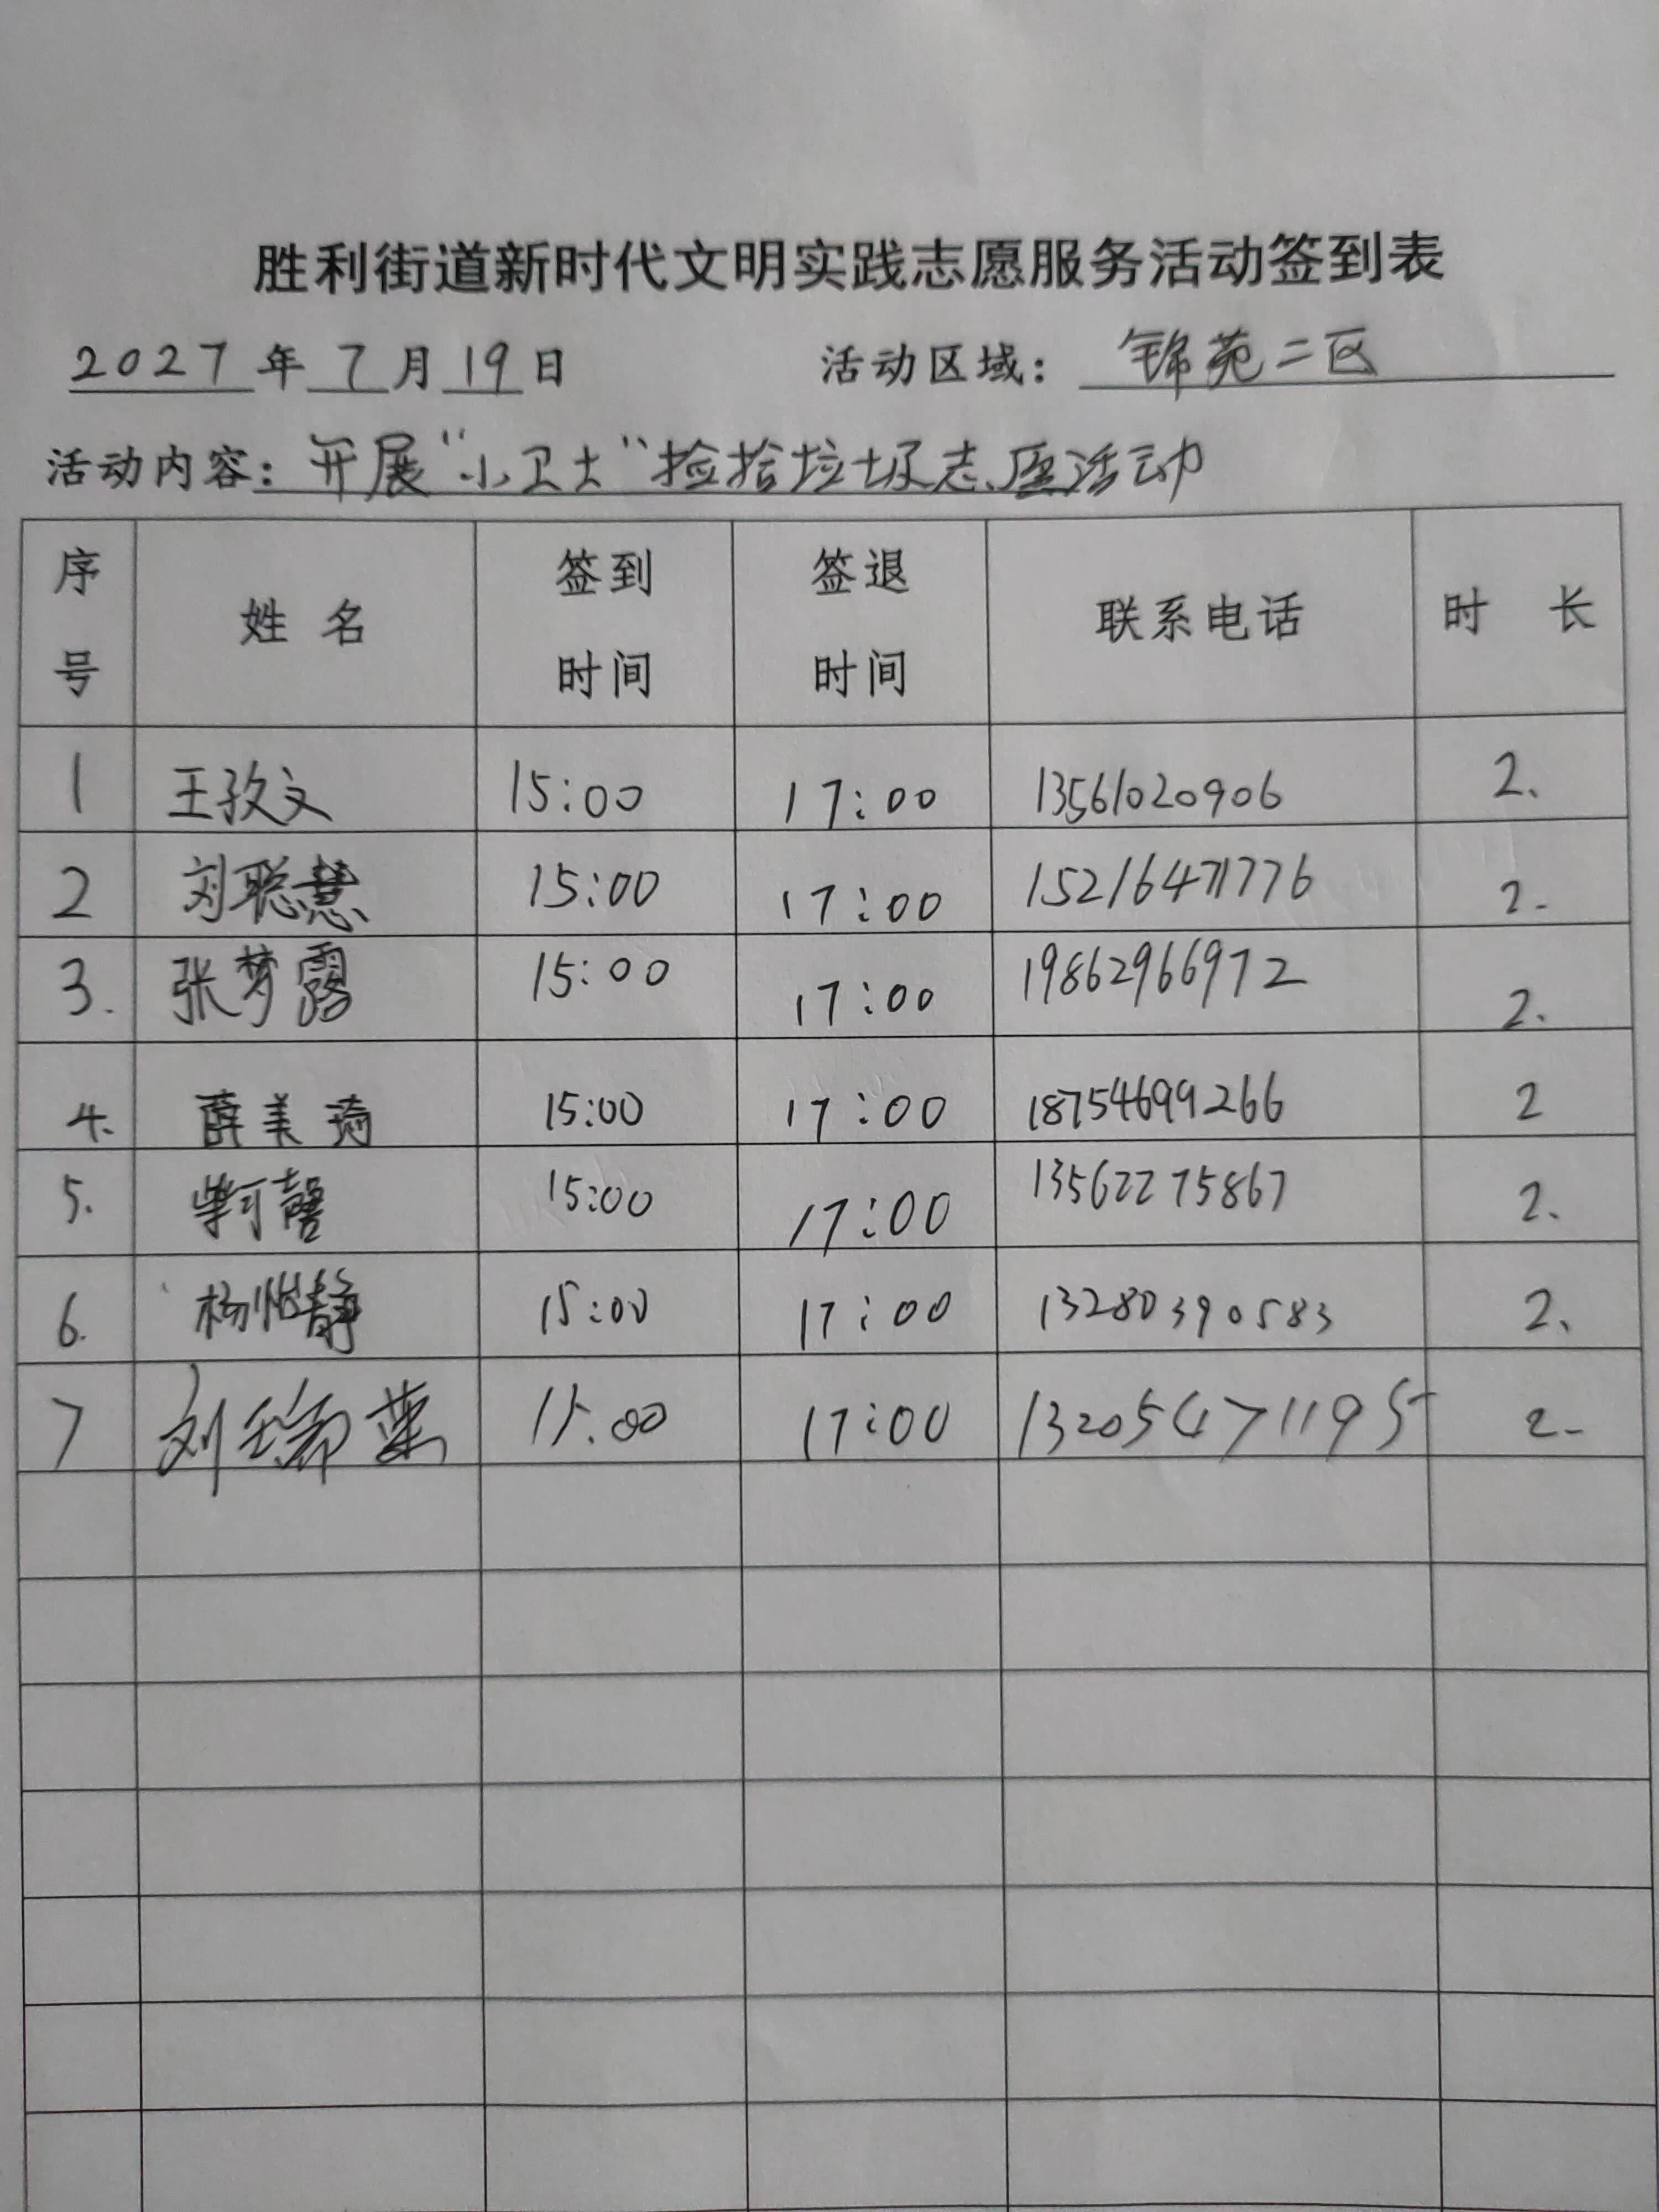 胜利街道新时代文明实践志愿服务活动签到表
2027年7月19日 活动区域：锦苑二区
活动内容：开展“小卫士”捡拾垃圾志愿活动
序号 姓名 签到时间 签退时间 联系电话 时长
1 王孜文 15:00 17:00 13561020906 2.
2 刘聪慧 15:00 17:00 15216471776 2.
3. 张梦露 15:00 17:00 19862966972 2.
4. 薛美琦 15:00 17:00 18754699266 2
5. 柴可馨 15:00 17:00 13562275867 2.
6. 杨怡静 15:00 17:00 13280390583 2.
7 刘瑞 15:00 17:00 13205471195 2.